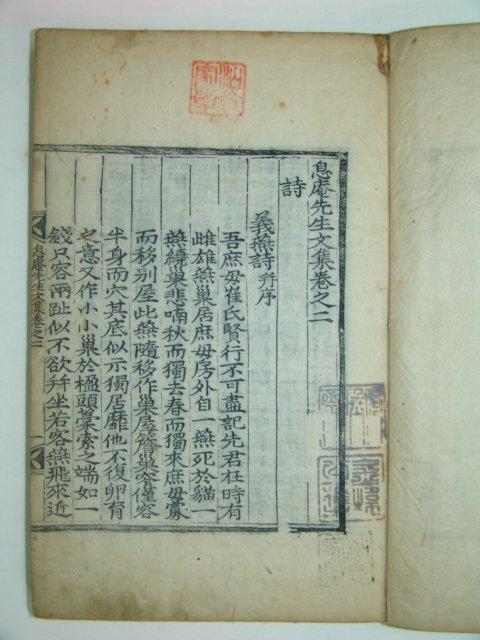 息庵先生文集卷之二
詩
義燕詩并序
吾庶母崔氏賢行不可盡記先君在時有
雌雄燕巢居庶母房外自一燕死於貓一
燕繞巢悲喃秋而獨去春而獨來庶母寡
而移別屋此燕隨移作巢
半身而穴其底似示獨居靡他不復卵育
之意又作小小巢於楹頭藁索之端如一
錢只容兩趾似不欲并坐若客燕飛來近
息庵先生文集卷之二
一